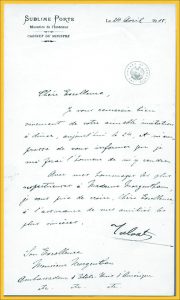 SUBLIME PORTE
Ministère de l'Intérieur
CABINET DU MINISTRE
Le 24 Avril 1915
Chère Excellence,
Je vous remercie bien
vivement de votre aimable invitation
à dîner, aujourd'hui le 24, et m'em-
presse de vous informer que je
me ferai l'honneur de m'y rendre.
Avec mes hommages les plus
respectueux à Madame Morgenthau
je vous prie de croire, Chère Excellence,
à l'assurance de mes amitiés les
plus sincères.
Talaat
Son Excellence
Monsieur Morgenthau
Ambassadeur d'Etats-Unis d'Amérique